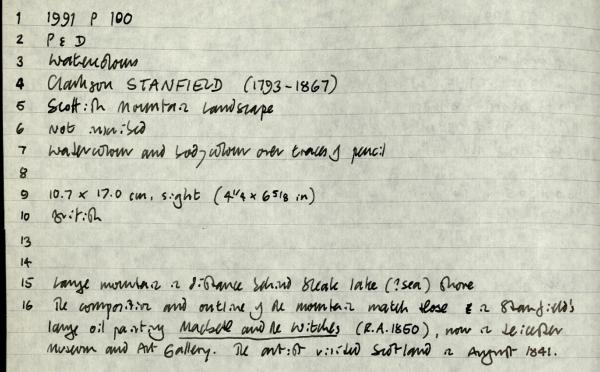 1 1991 P 100
2 P & D
3 Watercolours
4 Clarkson STANFIELD (1793-1867)
5 Scottish Mountain Landscape
6 Not inscribed
7 Watercolour and bodycolour over traces of pencil
8
9 10.7 x 17.0 cm, sight (4 1/4 x 6 5/8 in)
10 British
13
14
15 Large mountain in distance behind bleak lake (?sea) shore
16 The composition and outline of the mountain match those in Stanfield's
large oil painting Macbeth and the Witches (R.A. 1850), now in Leicester
Museum and Art Gallery. The artist visited Scotland in August 1841.